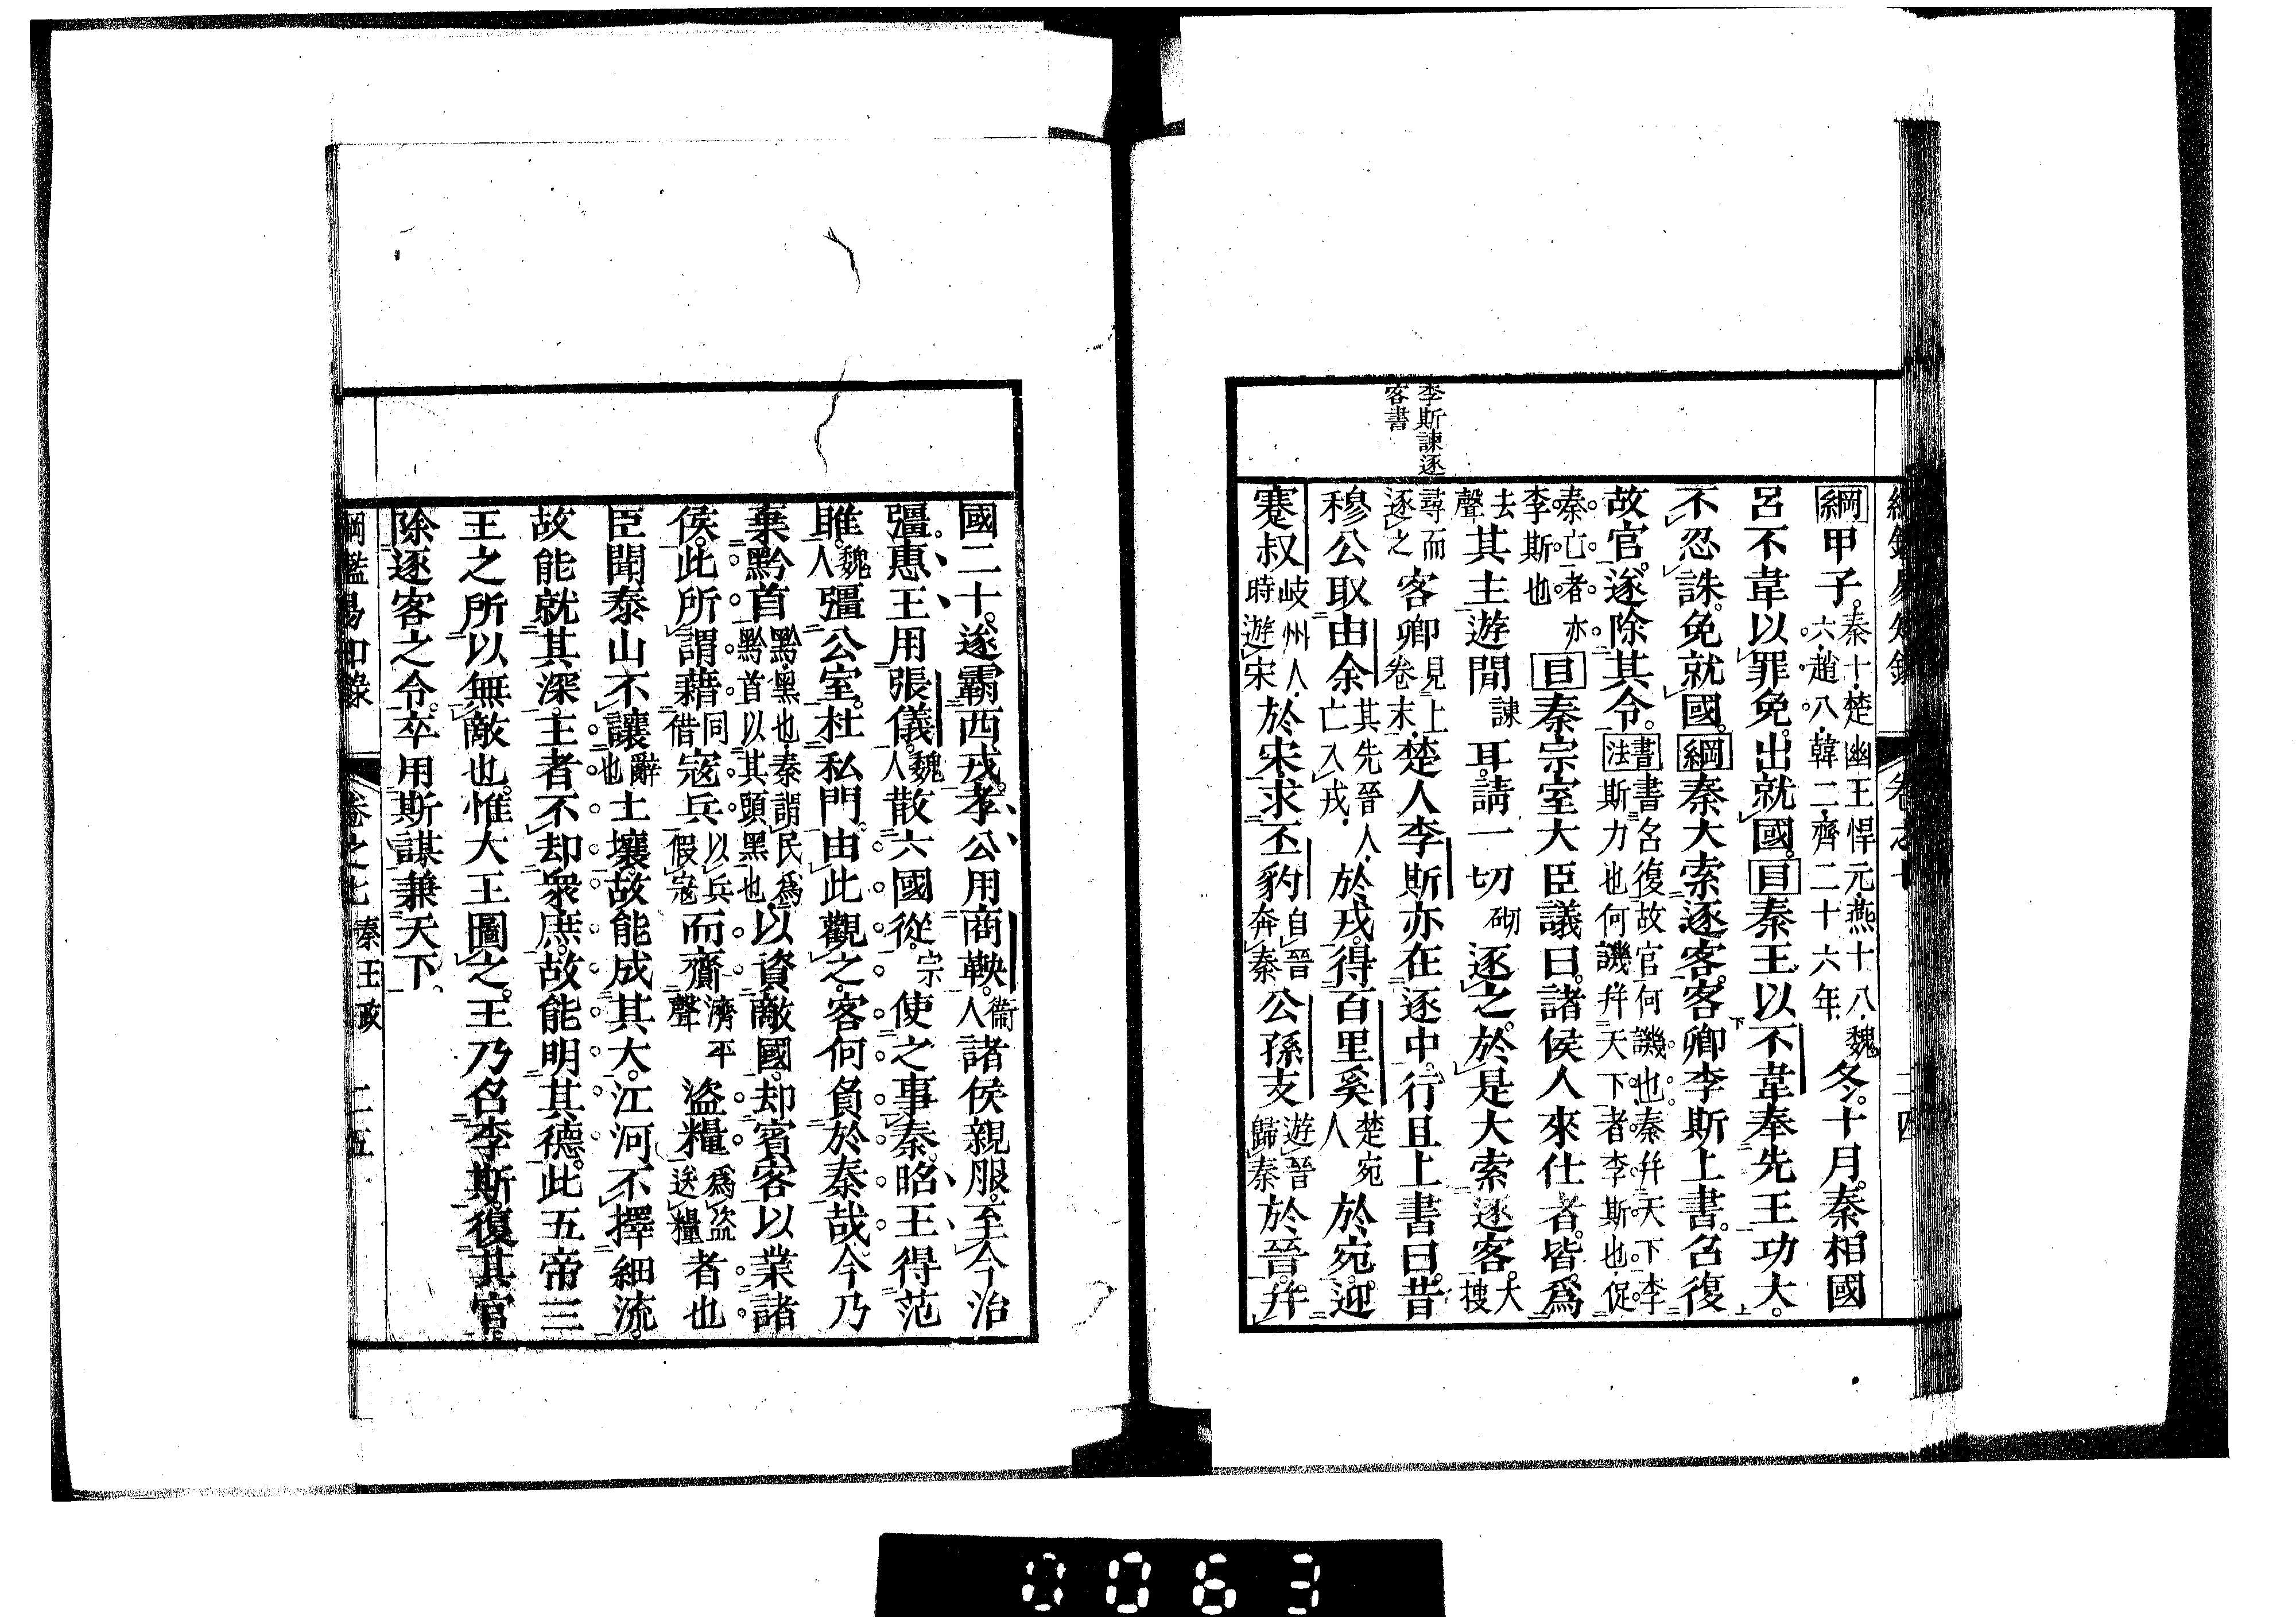 李斯諫逐
客書
綱甲子。秦十、楚幽王悍元、燕十八、魏六、趙八、韓二、齊二十六年、冬。十月。秦相國
呂不韋以罪免。出就國。目秦王以不韋奉先王功大。
不忍誅。免就國。綱秦大索逐客。客卿李斯上書。召復
故官。遂除其令。書法書召復故官何譏也。秦幷天下李斯力也何譏幷天下者李斯也。促
秦亡者亦李斯也。目秦宗室大臣議曰。諸侯人來仕者。皆爲
去聲其主遊間諫耳。請一切砌逐之。於是大索逐客。大搜
尋而逐之客卿見上卷末、楚人李斯亦在逐中。行且上書曰。昔
穆公取由余其先晉人、亡入戎、於戎。得百里奚楚宛人於宛。迎
蹇叔岐州人、時遊宋於宋。求丕豹自晉奔秦公孫支遊晉歸秦於晉。幷
國二十。遂霸西戎。孝公用商鞅。衞人諸侯親服。至今治
彊。惠王用張儀。魏人散六國從。宗使之事秦。昭王得范
雎。魏人彊公室。杜私門。由此觀之。客何負於秦哉今乃
棄黔首黔黑也、秦謂民爲黔首以其頭黑也、以資敵國。却賓客以業諸
侯。此所謂藉同借寇兵以兵假寇而齎濟平聲盜糧爲盜送糧者也
臣聞泰山不讓辭也土壤。故能成其大。江河不擇細流。
故能就其深。王者不却衆庶。故能明其德。此五帝三
王之所以無敵也。惟大王圖之。王乃召李斯。復其官。
除逐客之令。卒用斯謀兼天下。
綱鑑易知錄 卷之七 秦王政 二五
0063